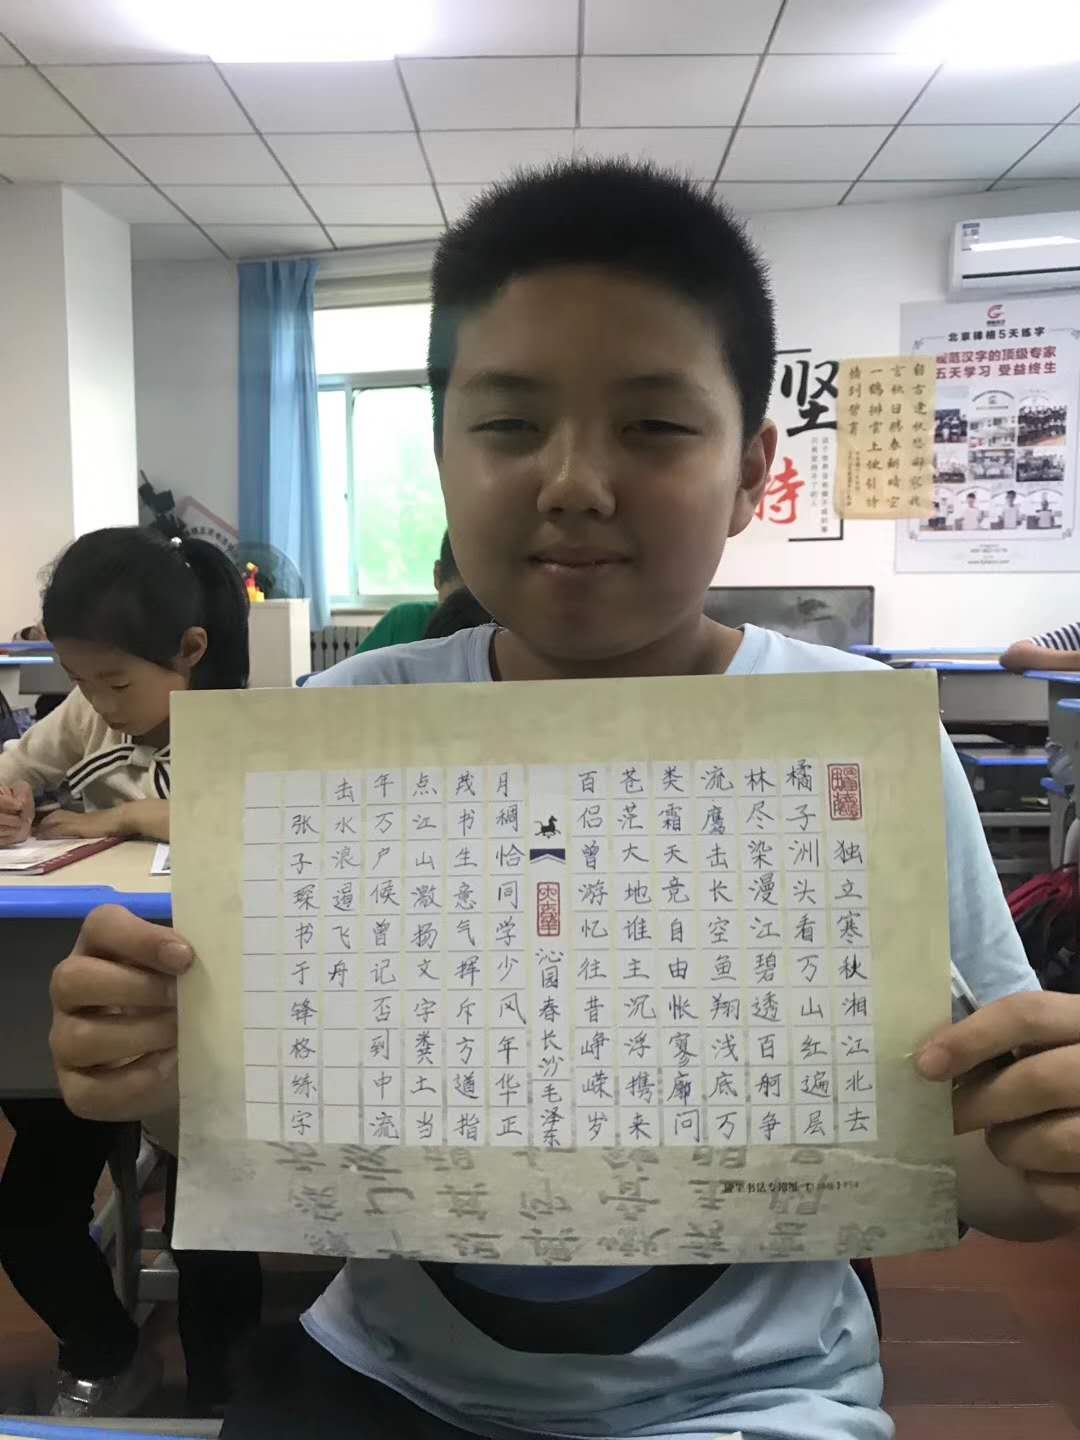 坚
持
自古逢秋悲寂寥我
言秋日胜春朝晴空
一鹤排雲上便引诗
情到碧霄
北京锋格5天练字
规范汉字的顶级专家
五天学习 受益终生
独立寒秋湘江北去
橘子洲头看万山红遍层
林尽染漫江碧透百舸争
流鹰击长空鱼翔浅底万
类霜天竞自由怅寥廓问
苍茫大地谁主沉浮携来
百侣曾游忆往昔峥嵘岁
沁园春长沙毛泽东
月稠恰同学少风年华正
茂书生意气挥斥方遒指
点江山激扬文字粪土当
年万户候曾记否到中流
击水浪遏飞舟
张子琛书于锋格练字